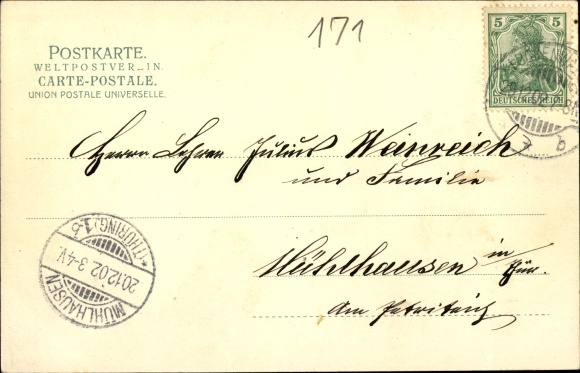 171
POSTKARTE.
WELTPOSTVER_IN.
CARTE-POSTALE.
UNION POSTALE UNIVERSELLE.
5 5
DEUTSCHES REICH
Herrn Lehrer Julius Weinreich
und Familie
Mühlhausen in Thür.
Am Petriteich
MÜHLHAUSEN
*(THÜRING.)1.b
20.12.02 3-4V.
b